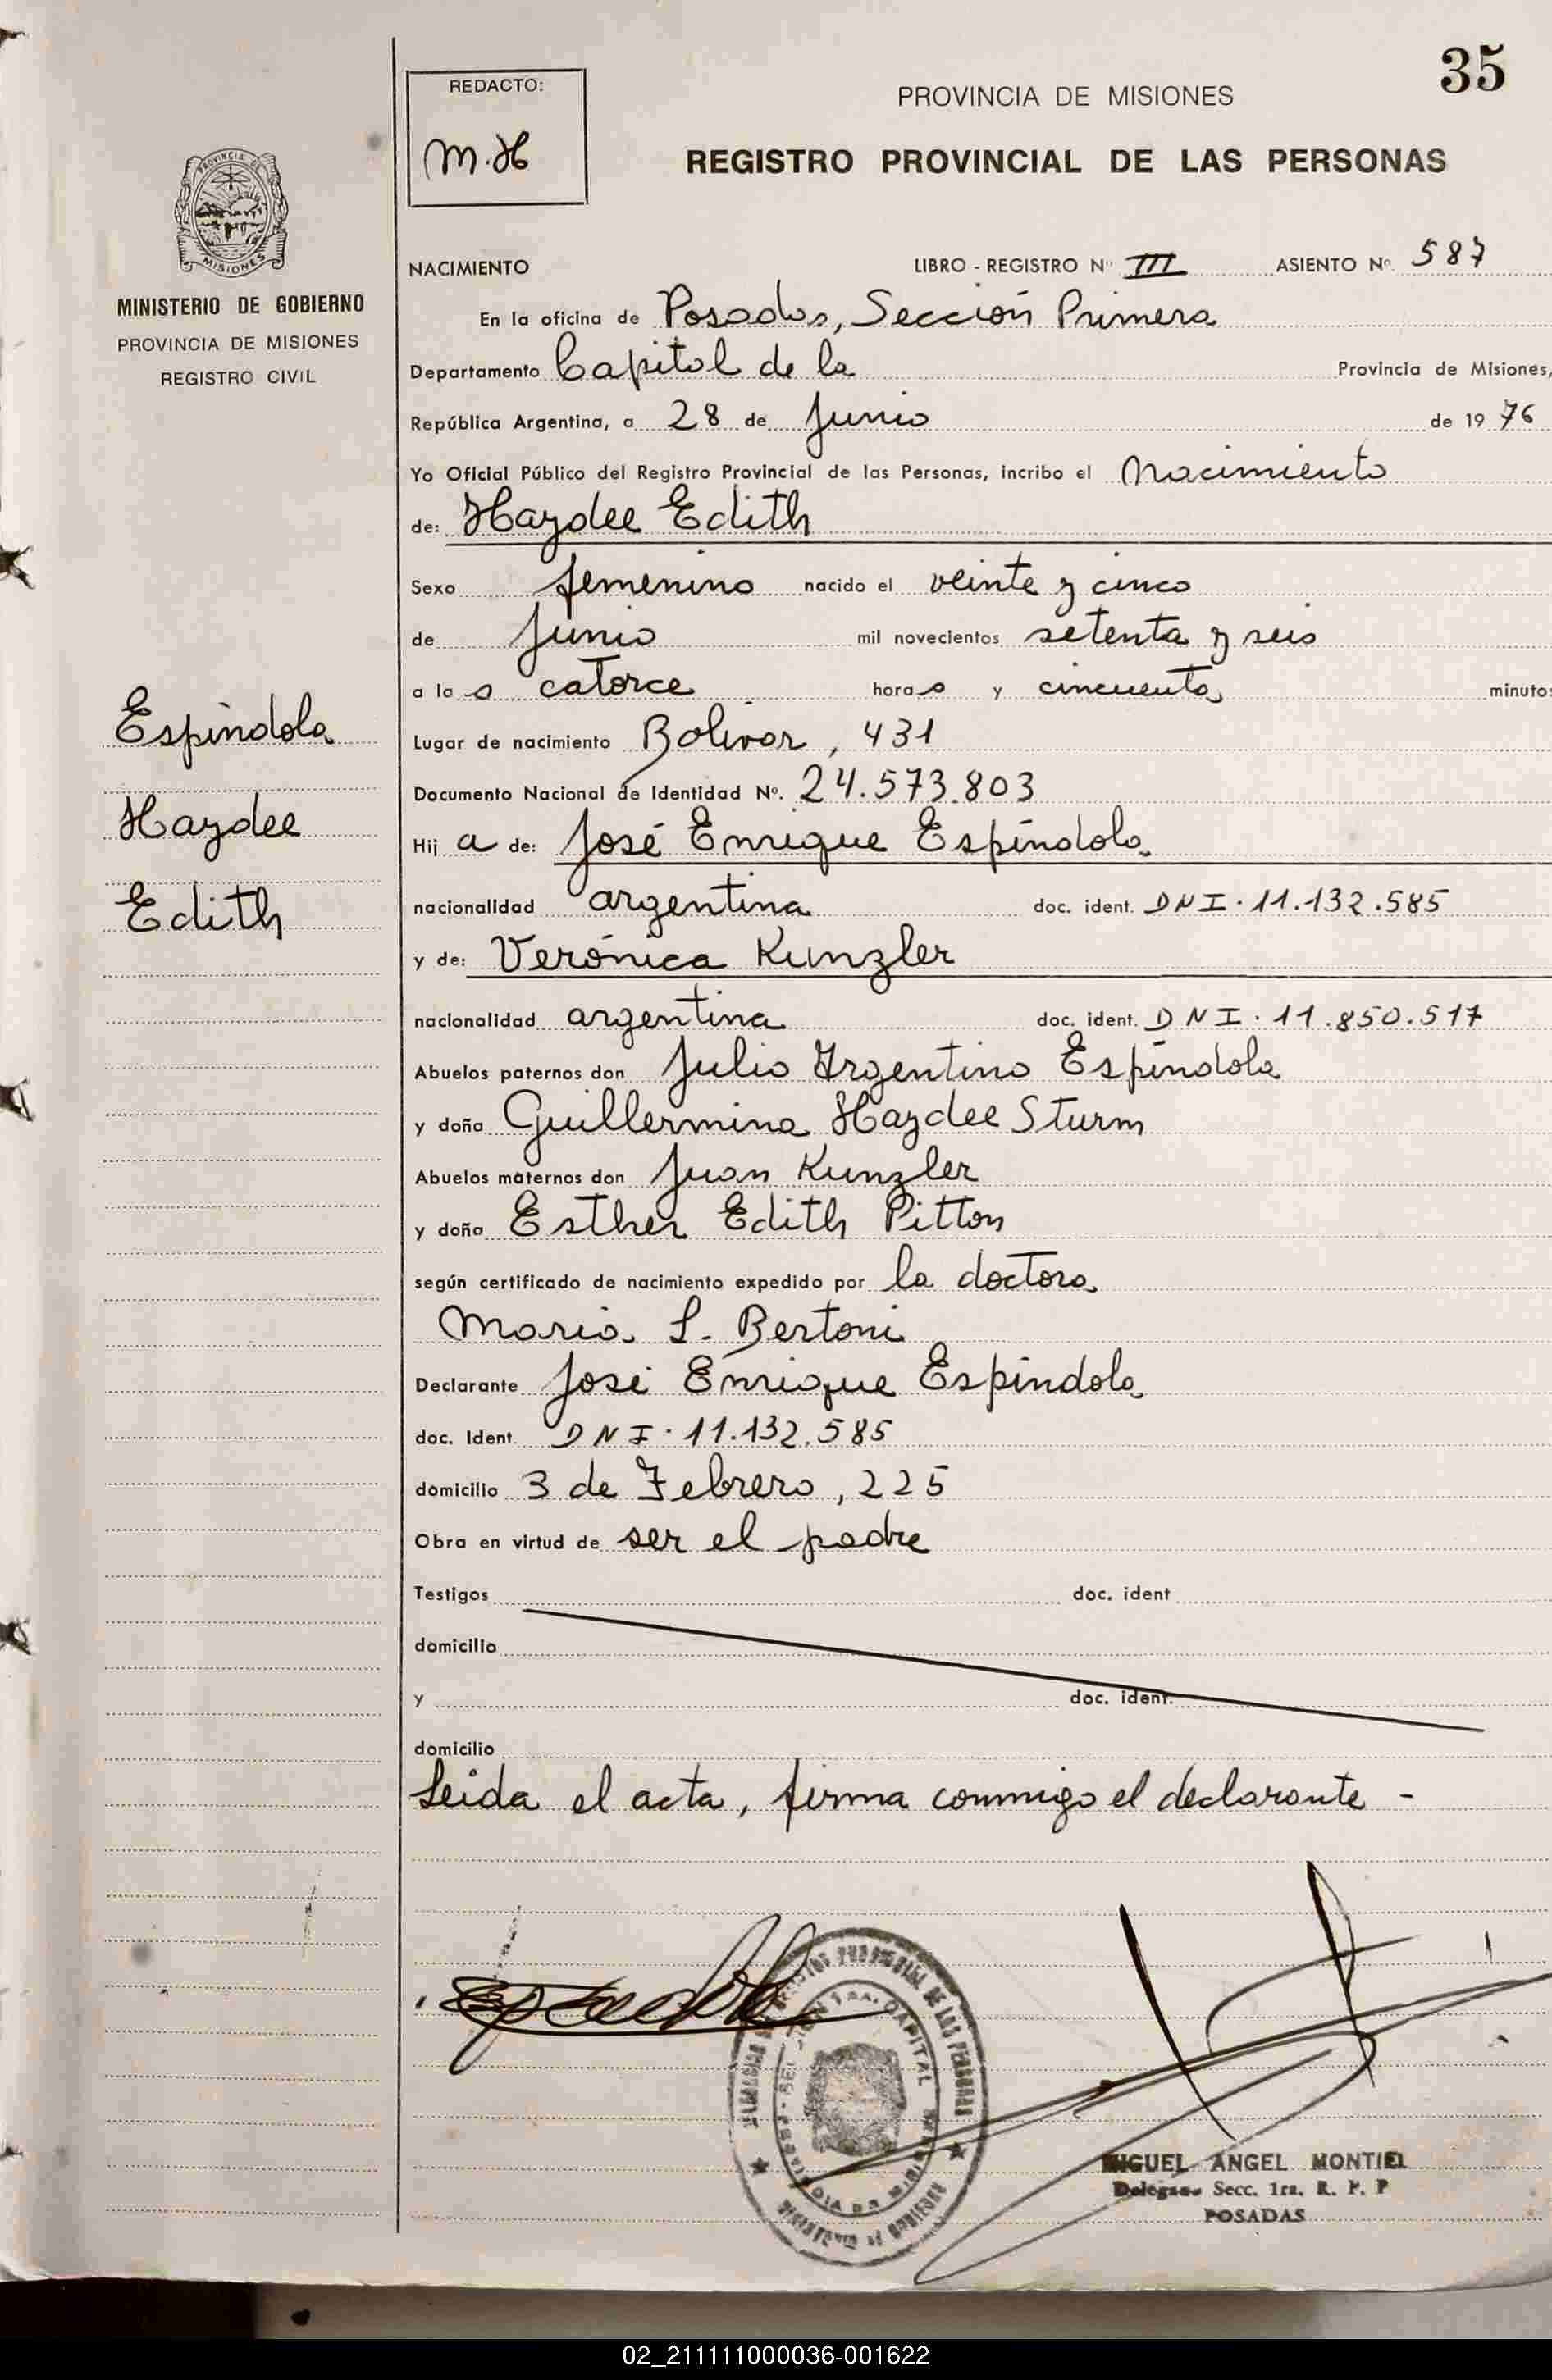 35
REDACTO:
M.H
PROVINCIA DE MISIONES
REGISTRO PROVINCIAL DE LAS PERSONAS
PROVINCIA DE
MISIONES
MINISTERIO DE GOBIERNO
PROVINCIA DE MISIONES
REGISTRO CIVIL
NACIMIENTO LIBRO - REGISTRO Nº III ASIENTO Nº 587
En la oficina de Posadas, Sección Primera
Departamento Capital de la Provincia de Misiones,
República Argentina, a 28 de Junio de 19 76
Yo Oficial Público del Registro Provincial de las Personas, incribo el Nacimiento
de: Haydee Edith
Sexo femenino nacido el veinte y cinco
de Junio mil novecientos setenta y seis
a la s catorce hora s y cincuenta minutos
Lugar de nacimiento Bolivar, 431
Documento Nacional de Identidad Nº. 24.573.803
Hij a de: José Enrique Espíndola
nacionalidad argentina doc. ident. DNI. 11.132.585
y de: Verónica Kunzler
nacionalidad argentina doc. ident. DNI. 11.850.517
Abuelos paternos don Julio Argentino Espíndola
y doña Guillermina Haydee Sturm
Abuelos maternos don Juan Kunzler
y doña Esther Edith Pitton
según certificado de nacimiento expedido por la doctora
Maria L. Bertoni
Declarante José Enrique Espíndola
doc. Ident. DNI. 11.132.585
domicilio 3 de Febrero, 225
Obra en virtud de ser el padre
Testigos doc. ident
domicilio
y doc. ident.
domicilio
Leida el acta, firma conmigo el declarante -
Espíndola
Haydee
Edith
MIGUEL ANGEL MONTIEL
Delegado Secc. 1ra. R. P. P
POSADAS
02_211111000036-001622